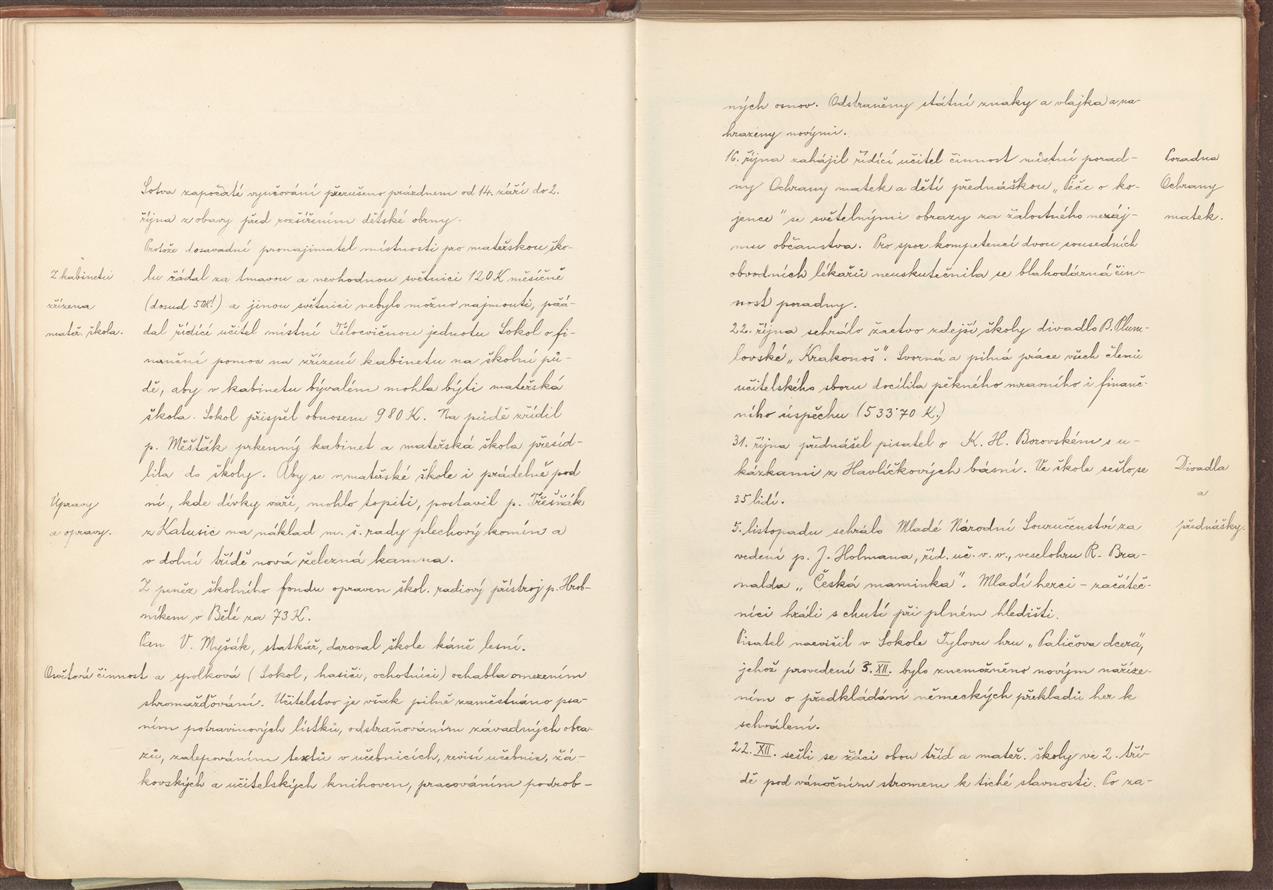 Sotva započaté vyučování přerušeno prázdnem od 14. září do 2.
října z obavy před rozšířením dětské obrny.
Protože dosavadní pronajimatel místnosti pro mateřskou ško-
Z kabinetu
lu žádal za tmavou a nevhodnou světnici 120 K měsíčně
zřízena
(dosud 50K!) a jinou světnici nebylo možno najmouti, požá-
mateř. škola.
dal řídící učitel místní Tělocvičnou jednotu Sokol o fi-
nanční pomoc na zřízení kabinetu na školní pů-
dě, aby v kabinetu bývalém mohla býti mateřská
škola. Sokol přispěl obnosem 980 K. Na půdě zřídil
p. Měšťák prkenný kabinet a mateřská škola přesíd-
lila do školy. Aby se v mateřské škole i prádelně pod
Úpravy
ní, kde dívky vaří, mohlo topiti, postavil p. Třešňák
a opravy.
z Katusic na náklad m. š. rady plechový komín a
v dolní třídě nová železná kamna.
Z peněz školního fondu opraven škol. radiový přístroj p. Hrob-
níkem v Bělé za 73 K.
Pan V. Myšák, statkář, daroval škole káně lesní.
Osvětová činnost a spolková (Sokol, hasiči, ochotníci) ochabla omezením
shromažďování. Učitelstvo je však pilně zaměstnáno psa-
ním potravinových lístků, odstraňováním závadných obra-
zů, zalepováním textů v učebnicích, revisí učebnic, žá-
kovských a učitelských knihoven, pracováním podrob-
ných osnov. Odstraněny státní znaky a vlajka a na-
hrazeny novými.
16. října zahájil řídící učitel činnost místní porad-
Poradna
ny Ochrany matek a dětí přednáškou „Péče o ko-
Ochrany
jence" se světelnými obrazy za žalostného nezáj-
matek.
mu občanstva. Pro spor kompetencí dvou sousedních
obvodních lékařů neuskutečnila se blahodárná čin-
nost poradny.
22. října sehrálo žactvo zdejší školy divadlo B. Plum-
lovské „Krakonoš". Svorná a pilná práce všech členů
učitelského sboru docílila pěkného mravního i finanč-
ního úspěchu (533·70 K.)
31. října přednášel pisatel o K. H. Borovském s u-
kázkami z Havlíčkových básní. Ve škole sešlo se
Divadla
35 lidí.
a
5. listopadu sehrálo Mladé Národní Souručenství za
přednášky.
vedení p. J. Holmana, říd. uč. v. v., veselohru R. Bra-
nalda „Česká maminka". Mladí herci – začáteč-
níci hráli s chutí při plném hledišti.
Pisatel nacvičil v Sokole Tylovu hru „Paličova dcera",
jehož provedení 3. XII. bylo znemožněno novým naříze-
ním o předkládání německých překladů her k
schválení.
22. XII. sešli se žáci obou tříd a mateř. školy ve 2. tří-
dě pod vánočním stromem k tiché slavnosti. Po za-